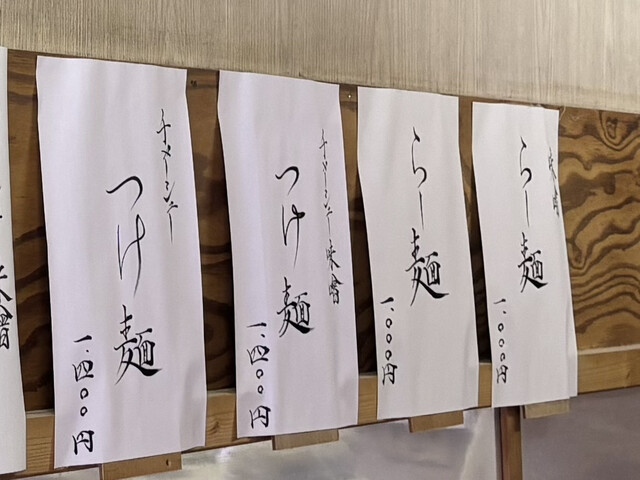 味噌
らー麺
一、〇〇〇円
らー麺
一、〇〇〇円
チャーシュー味噌
つけ麺
一、四〇〇円
チャーシュー
つけ麺
一、四〇〇円
味噌